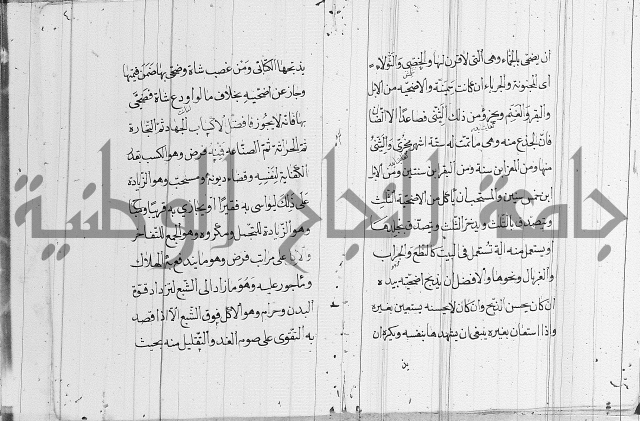 ان يضحى بالجماء وهى التى لا قرن لها والخصى والثولاء
اى المجنونة والجرباء ان كانت سمينة والاضحية من الابل
والبقر والغنم ويجزء من ذلك الثنى فصاعدًا الا الضأن
فان الجذع منه وهى ما تمت له ستة اشهر يجزى والثنى
منها ومن المعز ابن سنة ومن البقر ابن سنتين ومن الابل
ابن خمس سنين والمستحب ان ياكل من الاضحية الثلث
ويتصدق بالثلث ويدخر الثلث ويتصدق بجلدها
او يستعمل منه آلة تستعمل فى البيت كالنطع والجراب
والغربال ونحوها والافضل ان يذبح اضحيته بيده
ان كان يحسن الذبح وان كان لا يحسنه يستعين بغيره
واذا استعان بغيره ينبغى ان يشهدها بنفسه ويكره ان
يذبحها الكتابى ومن غصب شاة وضحى بها ضمن قيمتها
وجاز عن اضحيته بخلاف ما لو اودع شاة فضحى
بها فانه لا يجوز فافضل الاكساب الجهاد ثم التجارة
ثم الحراثة ثم الصناعة فرض وهو الكسب بقدر
الكفاية لنفسه وقضاء ديونه ومستحب وهو الزيادة
على ذلك ليواسى به فقيرًا او يجازى به قريبا
وهو الزيادة للتجمل ومكروه وهو الجمع للتفاخر
على مراتب فرض وهو ما يندفع به الهلاك
ومأجور عليه وهو ما زاد الى الشبع لتزداد قوة
البدن وحرام وهو الاكل فوق الشبع الا اذا قصد
به التقوى على صوم الغد والتقليل منه بحيث
جامعة النجاح الوطنية